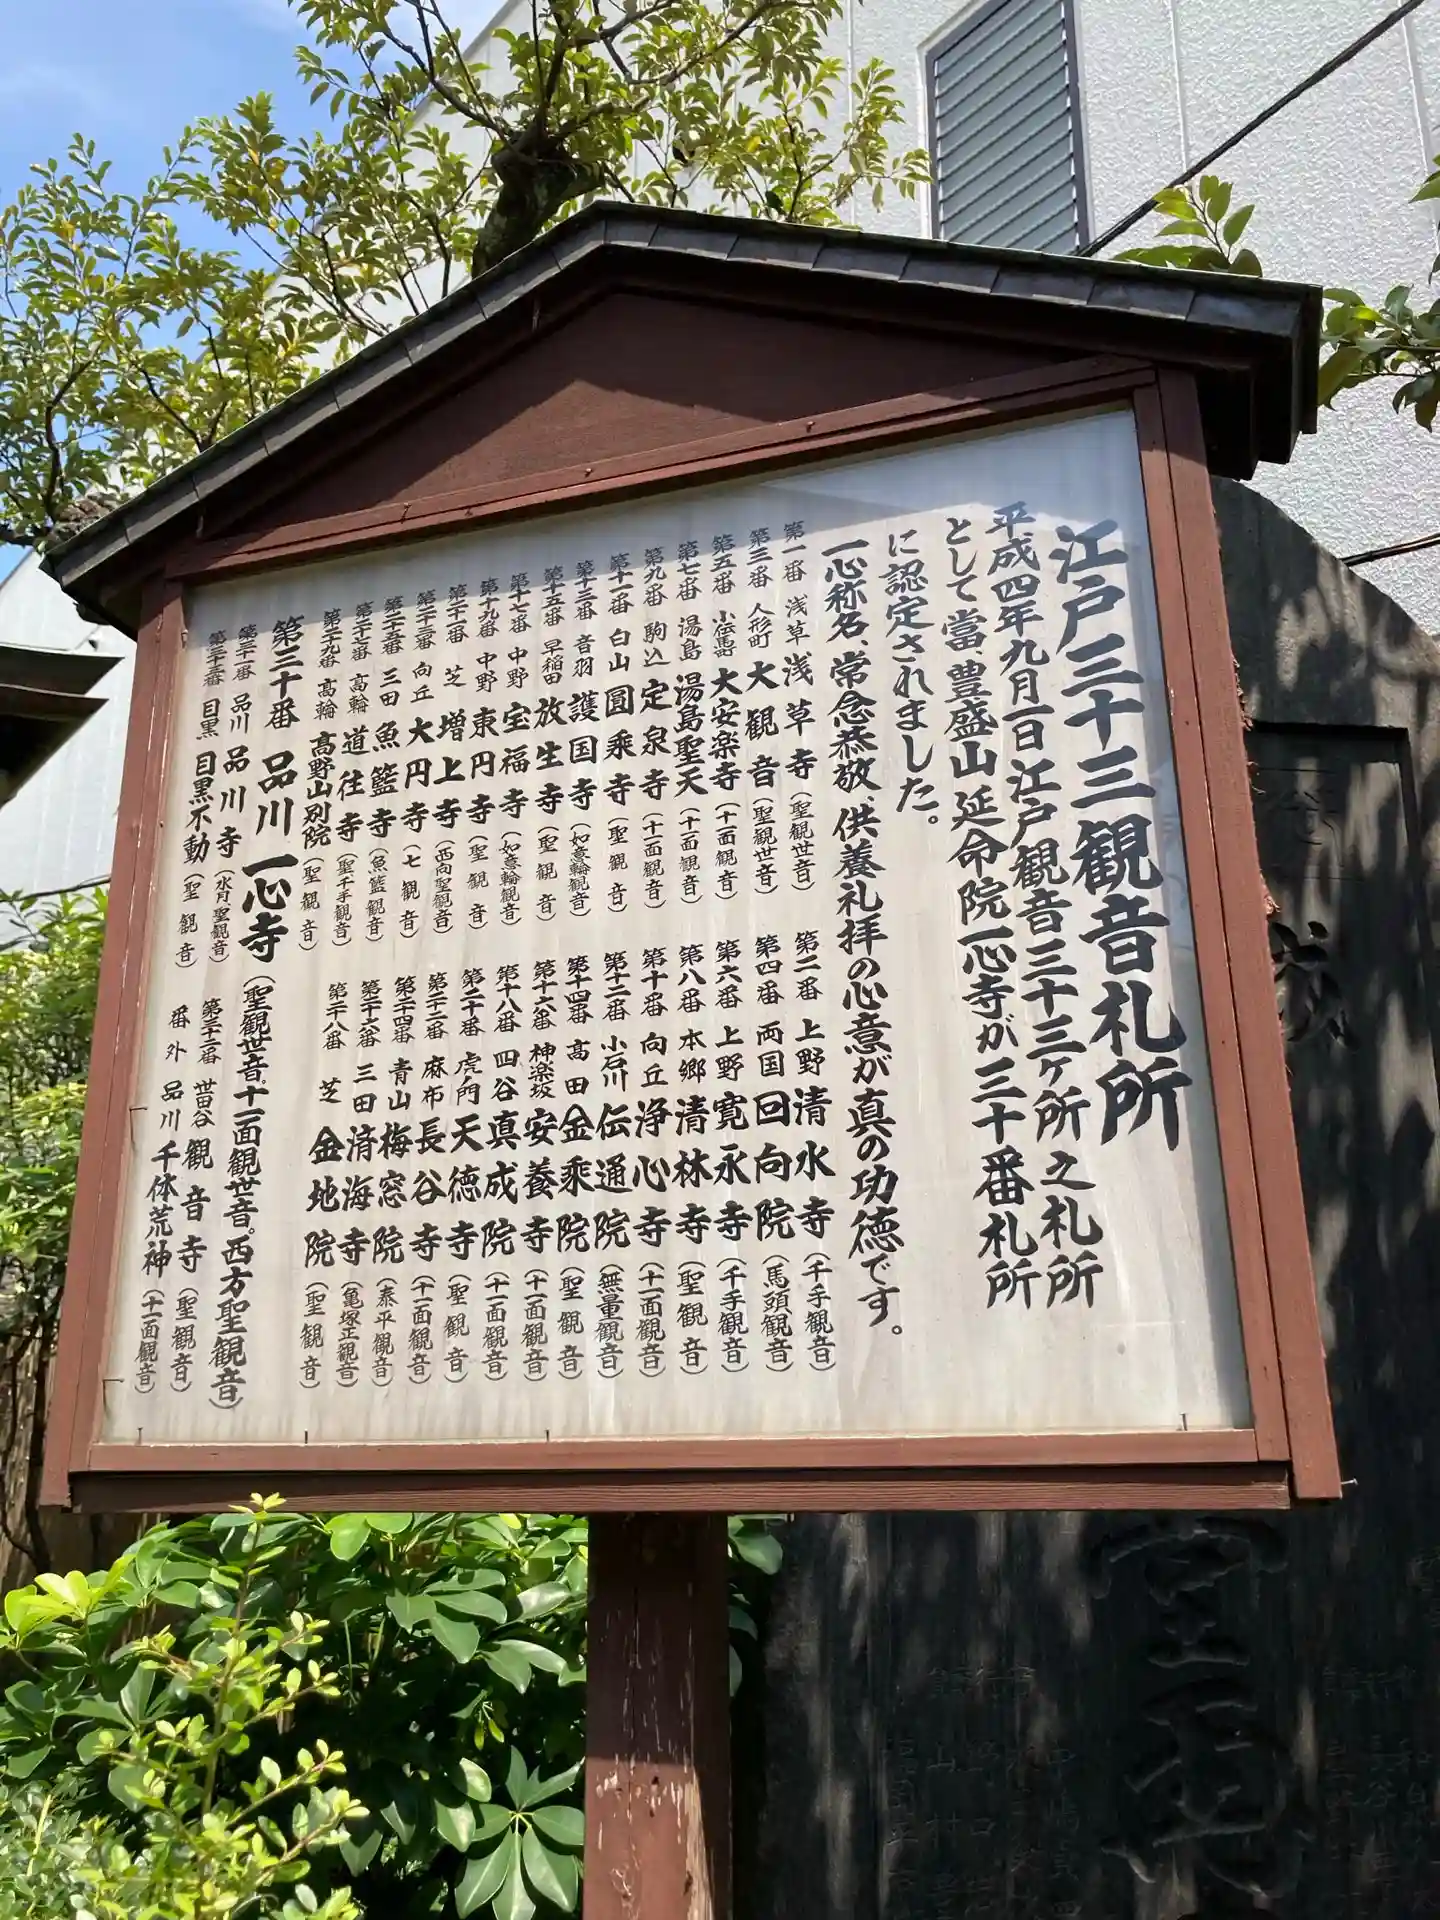 江戸三十三観音札所
平成四年九月一日江戸観音三十三ヶ所之札所
として當、豊盛山延命院一心寺が三十番札所
に認定されました。
一心称名、常念恭敬、供養礼拝の心意が真の功徳です。
第一番 浅草 浅草寺(聖観世音)
第二番 上野 清水寺(千手観音)
第三番 人形町 大観音(聖観世音)
第四番 両国 回向院(馬頭観音)
第五番 小伝馬町 大安楽寺(十一面観音)
第六番 上野 寛永寺(千手観音)
第七番 湯島 湯島聖天(十一面観音)
第八番 本郷 清林寺(聖観音)
第九番 駒込 定泉寺(十一面観音)
第十番 向丘 浄心寺(十一面観音)
第十一番 白山 圓乘寺(聖観音)
第十二番 小石川 伝通院(無量観音)
第十三番 音羽 護国寺(如意輪観音)
第十四番 高田 金乘院(聖観音)
第十五番 早稲田 放生寺(聖観音)
第十六番 神楽坂 安養寺(十一面観音)
第十七番 中野 宝福寺(如意輪観音)
第十八番 四谷 真成院(十一面観音)
第十九番 中野 東円寺(聖観音)
第二十番 虎ノ門 天徳寺(聖観音)
第二十一番 芝 増上寺(西向聖観音)
第二十二番 麻布 長谷寺(十一面観音)
第二十三番 向丘 大円寺(七観音)
第二十四番 青山 梅窓院(泰平観音)
第二十五番 三田 魚籃寺(魚籃観音)
第二十六番 三田 済海寺(亀塚正観音)
第二十七番 高輪 道往寺(聖千手観音)
第二十八番 芝 金地院(聖観音)
第二十九番 高輪 高野山別院(聖観音)
第三十番 品川 一心寺(聖観世音。十一面観世音。西方聖観音)
第三十一番 品川 品川寺(水月聖観音)
第三十二番 世田谷 観音寺(聖観音)
第三十三番 目黒 目黒不動(聖観音)
番外 品川 千体荒神(十一面観音)